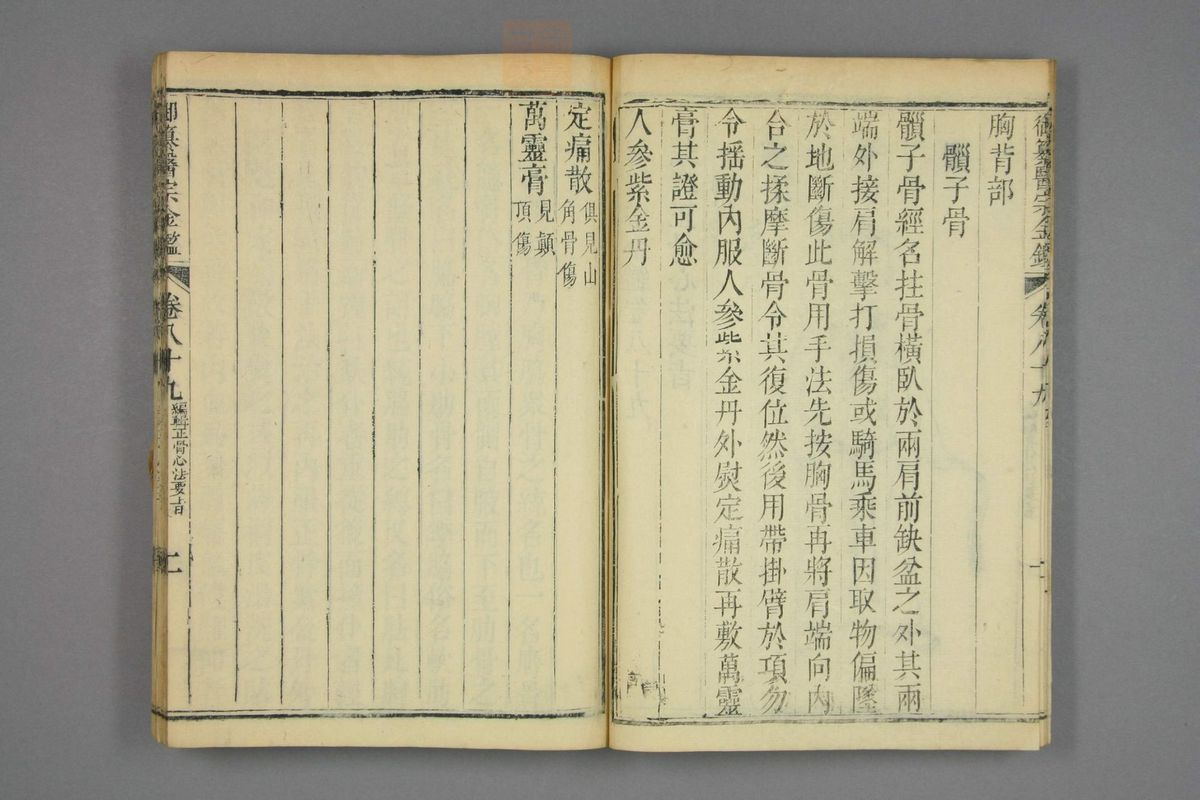 御纂醫宗金鑑
卷八十九
胸背部
髃子骨
髃子骨經名拄骨橫臥於兩肩前缺盆之外其兩
端外接肩解擊打損傷或騎馬乘車因取物偏墜
於地斷傷此骨用手法先按胸骨再將肩端向內
合之揉摩斷骨令其復位然後用帶掛臂於項勿
令揺動內服人參紫金丹外熨定痛散再敷萬靈
膏其證可愈
人參紫金丹
定痛散俱見山
角骨傷
萬靈膏見顛
頂傷
御纂醫宗金鑑
卷八十九
編輯正骨心法要旨